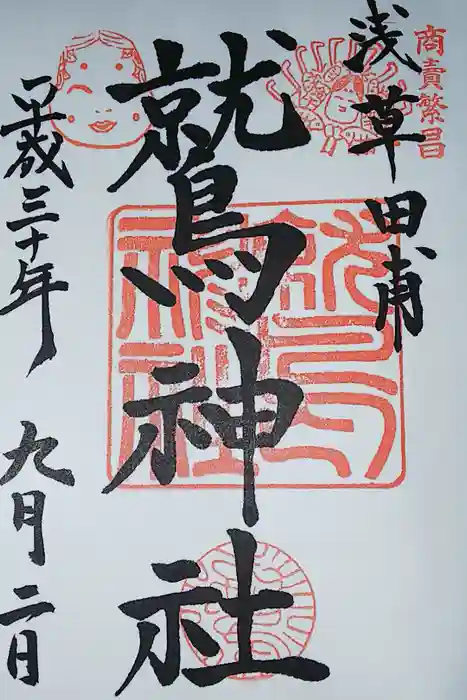 商賣繁昌
浅草田甫
鷲神社
鷲神社
平成三十年 九月 二日